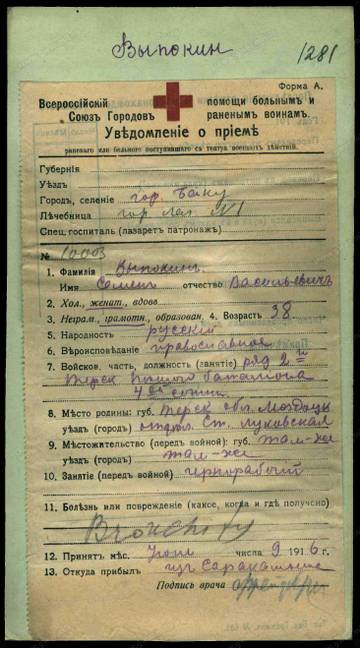 Выпокин
1281
Форма А.
Всероссійскій помощи больнымъ и
Союзъ Городовъ раненымъ воинамъ.
Увѣдомленіе о пріемѣ
раненаго или больного поступившаго съ театра военныхъ дѣйствій.
Губернія
Уѣздъ
Городъ, селеніе гор. Баку
Лѣчебница гор. Лаз. №1
Спец. госпиталь (лазаретъ патронажъ)
№ 10003
1. Фамилія Выпокинъ
Имя Семенъ отчество Васильевичъ
2. Хол., женат., вдовъ
3. Неграм., грамотн., образован. 4. Возрастъ 38
5. Народность русскій
6. Вѣроисповѣданіе православное
7. Войсков. часть, должность (занятіе) ряд. 2й
Терск. Пѣшаго баталіона
4ой сотни
8. Мѣсто родины: губ. Терск. обл. Моздокск.
уѣздъ (город) отдѣл. Ст. Луковская
9. Мѣстожительство (передъ войной): губ. там-же
уѣздъ (город) там-же
10. Занятіе (передъ войной) чернорабочій
11. Болѣзнь или поврежденіе (какое, когда и гдѣ получено)
12. Принятъ мѣс. числа 9 1916 г.
13. Откуда прибылъ изъ Саракамыша
Подпись врача